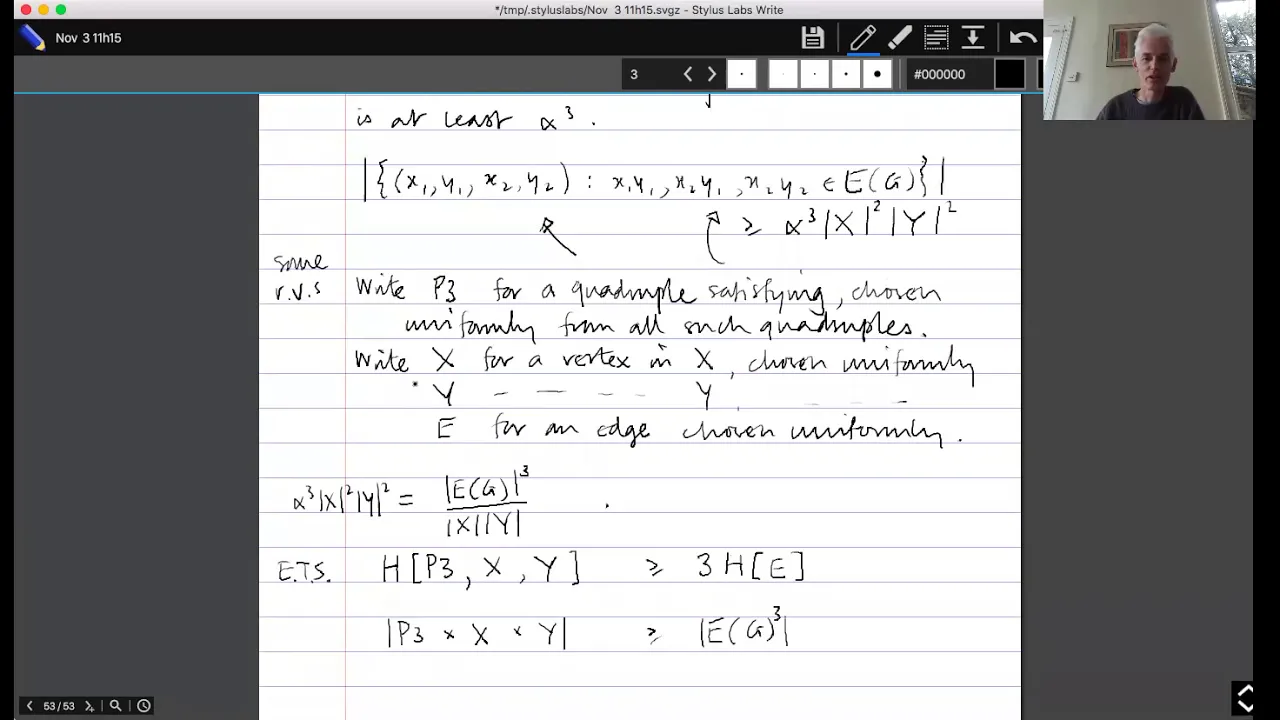 */tmp/.styluslabs/Nov 3 11h15.svgz - Stylus Labs Write
Nov 3 11h15
3
#000000
is at least α³.
|{(x₁,y₁,x₂,y₂) : x₁y₁,x₂y₁,x₂y₂ ∈ E(G)³}|
≥ α³|X|²|Y|²
some
r.v.s
Write P3 for a quadruple satisfying, chosen
uniformly from all such quadruples.
Write X for a vertex in X, chosen uniformly
Y – — – – Y, – – –
E for an edge chosen uniformly.
α³|X|²|Y|² = |E(G)|³ / |X||Y| .
E.T.S. H[P3, X, Y] ≥ 3H[E]
|P3 × X × Y| ≥ |E(G)³|
53/53